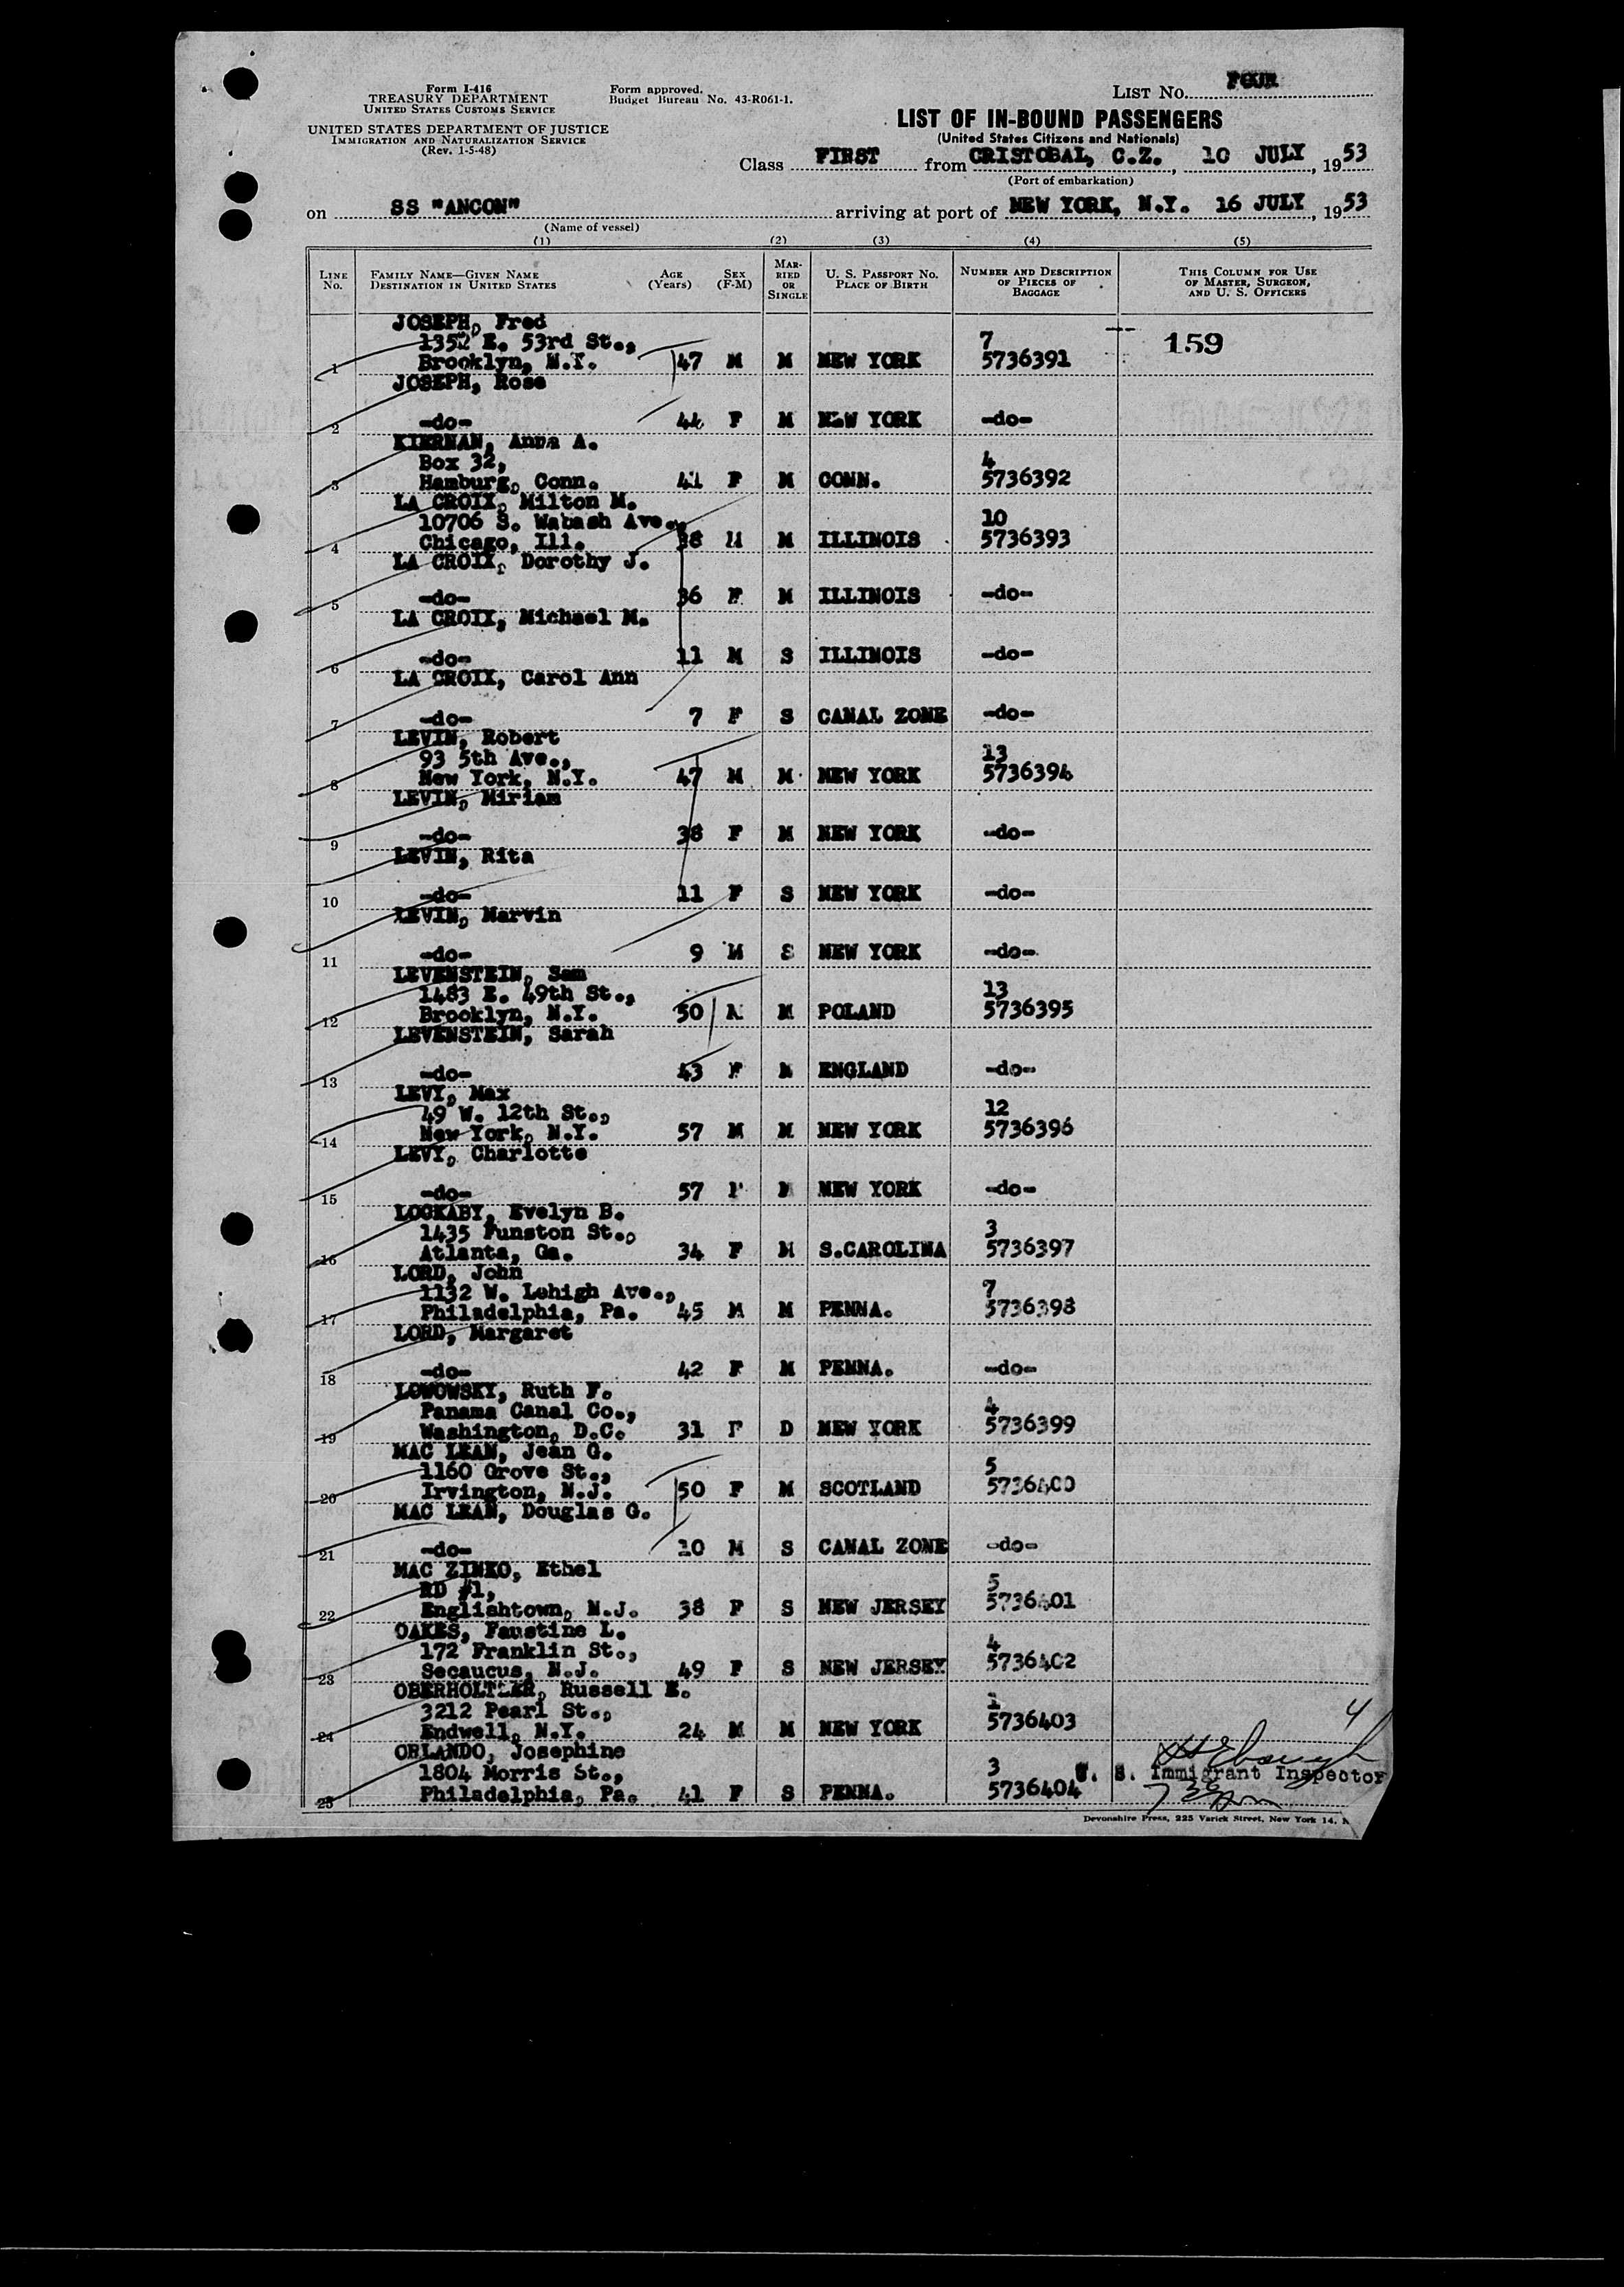 Form I-416
TREASURY DEPARTMENT
UNITED STATES CUSTOMS SERVICE
UNITED STATES DEPARTMENT OF JUSTICE
IMMIGRATION AND NATURALIZATION SERVICE
(Rev. 1-5-48)
Form approved.
Budget Bureau No. 43-R061-1.
LIST No. FOUR
LIST OF IN-BOUND PASSENGERS
(United States Citizens and Nationals)
Class FIRST from CRISTOBAL, C.Z. , 10 JULY , 1953
(Port of embarkation)
on SS "ANCON" arriving at port of NEW YORK, N.Y. 16 JULY , 1953
(Name of vessel)
(1) (2) (3) (4) (5)
LINE No. FAMILY NAME—GIVEN NAME DESTINATION IN UNITED STATES AGE (Years) SEX (F-M) MARRIED OR SINGLE U. S. PASSPORT NO. PLACE OF BIRTH NUMBER AND DESCRIPTION OF PIECES OF BAGGAGE THIS COLUMN FOR USE OF MASTER, SURGEON, AND U. S. OFFICERS
JOSEPH, Fred
1352 E. 53rd St., 7 159
1 Brooklyn, N.Y. 47 M M NEW YORK 5736391
JOSEPH, Rose
2 -do- 44 F M NEW YORK -do-
KIERNAN, Anna A.
Box 32, 4
3 Hamburg, Conn. 41 F M CONN. 5736392
LA CROIX, Milton M.
10706 S. Wabash Ave., 10
4 Chicago, Ill. 38 M M ILLINOIS 5736393
LA CROIX, Dorothy J.
5 -do- 36 F M ILLINOIS -do-
LA CROIX, Michael M.
6 -do- 11 M S ILLINOIS -do-
LA CROIX, Carol Ann
7 -do- 7 F S CANAL ZONE -do-
LEVIN, Robert
93 5th Ave., 13
8 New York, N.Y. 47 M M NEW YORK 5736394
LEVIN, Miriam
9 -do- 38 F M NEW YORK -do-
LEVIN, Rita
10 -do- 11 F S NEW YORK -do-
LEVIN, Marvin
11 -do- 9 M S NEW YORK -do-
LEVENSTEIN, Sam
1483 E. 49th St., 13
12 Brooklyn, N.Y. 50 M M POLAND 5736395
LEVENSTEIN, Sarah
13 -do- 43 F M ENGLAND -do-
LEVY, Max
49 W. 12th St., 12
14 New York, N.Y. 57 M M NEW YORK 5736396
LEVY, Charlotte
15 -do- 57 F M NEW YORK -do-
LOCKABY, Evelyn B.
1435 Funston St., 3
16 Atlanta, Ga. 34 F M S.CAROLINA 5736397
LORD, John
1132 W. Lehigh Ave., 7
17 Philadelphia, Pa. 45 M M PENNA. 5736398
LORD, Margaret
18 -do- 42 F M PENNA. -do-
LOWOWSKY, Ruth F.
Panama Canal Co., 4
19 Washington, D.C. 31 F D NEW YORK 5736399
MAC LEAN, Jean G.
1160 Grove St., 5
20 Irvington, N.J. 50 F M SCOTLAND 5736400
MAC LEAN, Douglas G.
21 -do- 10 M S CANAL ZONE -do-
MAC ZINKO, Ethel
RD #1, 5
22 Englishtown, N.J. 38 F S NEW JERSEY 5736401
OAKES, Faustine L.
172 Franklin St., 4
23 Secaucus, N.J. 49 F S NEW JERSEY 5736402
OBERHOLTZER, Russell E.
3212 Pearl St., 1 4
24 Endwell, N.Y. 24 M M NEW YORK 5736403
ORLANDO, Josephine
1804 Morris St., 3 U. S. Immigrant Inspector
25 Philadelphia, Pa. 41 F S PENNA. 5736404
Devonshire Press, 225 Varick Street, New York 14,